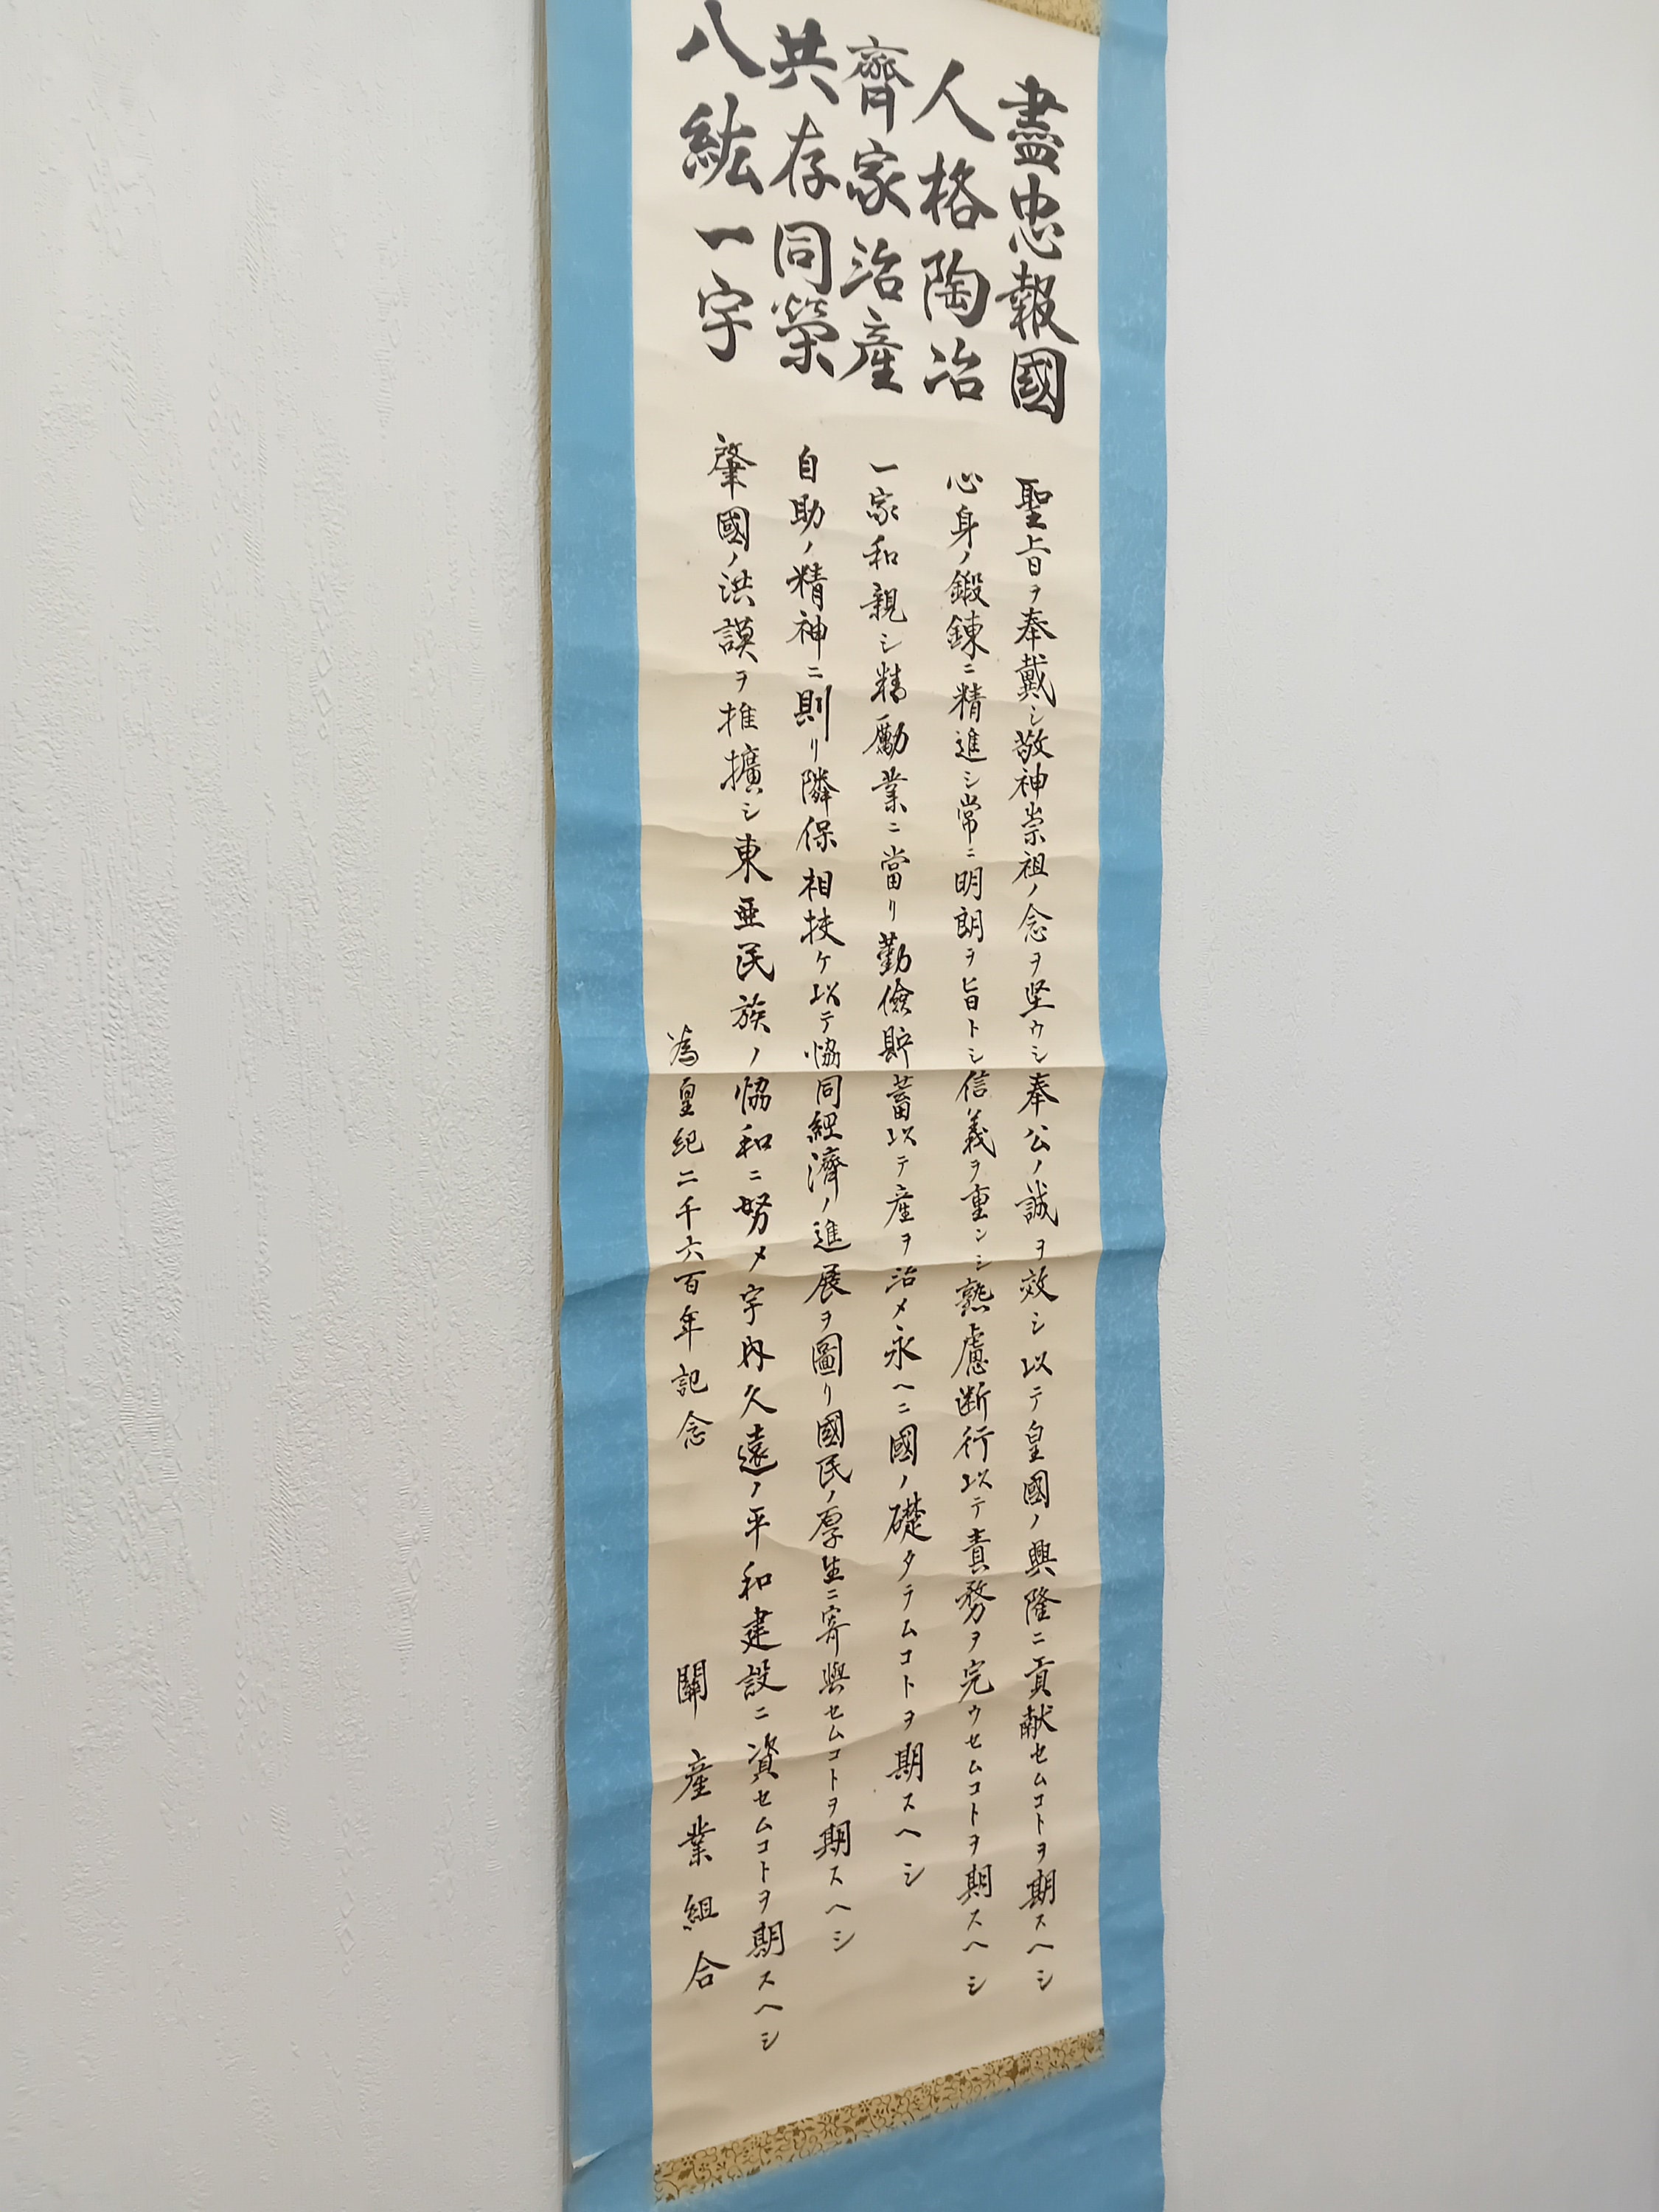 盡忠報國
聖旨ヲ奉戴シ敬神崇祖ノ念ヲ堅ウシ奉公ノ誠ヲ效シ以テ皇國ノ興隆ニ貢献セムコトヲ期スヘシ
人格陶冶
心身ノ鍛錬ニ精進シ常ニ明朗ヲ旨トシ信義ヲ重ンシ熟慮断行以テ責務ヲ完ウセムコトヲ期スヘシ
齊家治産
一家和親シ精勵業ニ當リ勤儉貯蓄以テ産ヲ治メ永ヘニ國ノ礎タラムコトヲ期スヘシ
共存同榮
自助ノ精神ニ則リ隣保相扶ケ以テ恊同經濟ノ進展ヲ圖リ國民ノ厚生ニ寄與セムコトヲ期スヘシ
八紘一宇
肇國ノ洪謨ヲ推擴シ東亜民族ノ恊和ニ努メ宇内久遠ノ平和建設ニ資セムコトヲ期スヘシ
為皇紀二千六百年記念
關産業組合